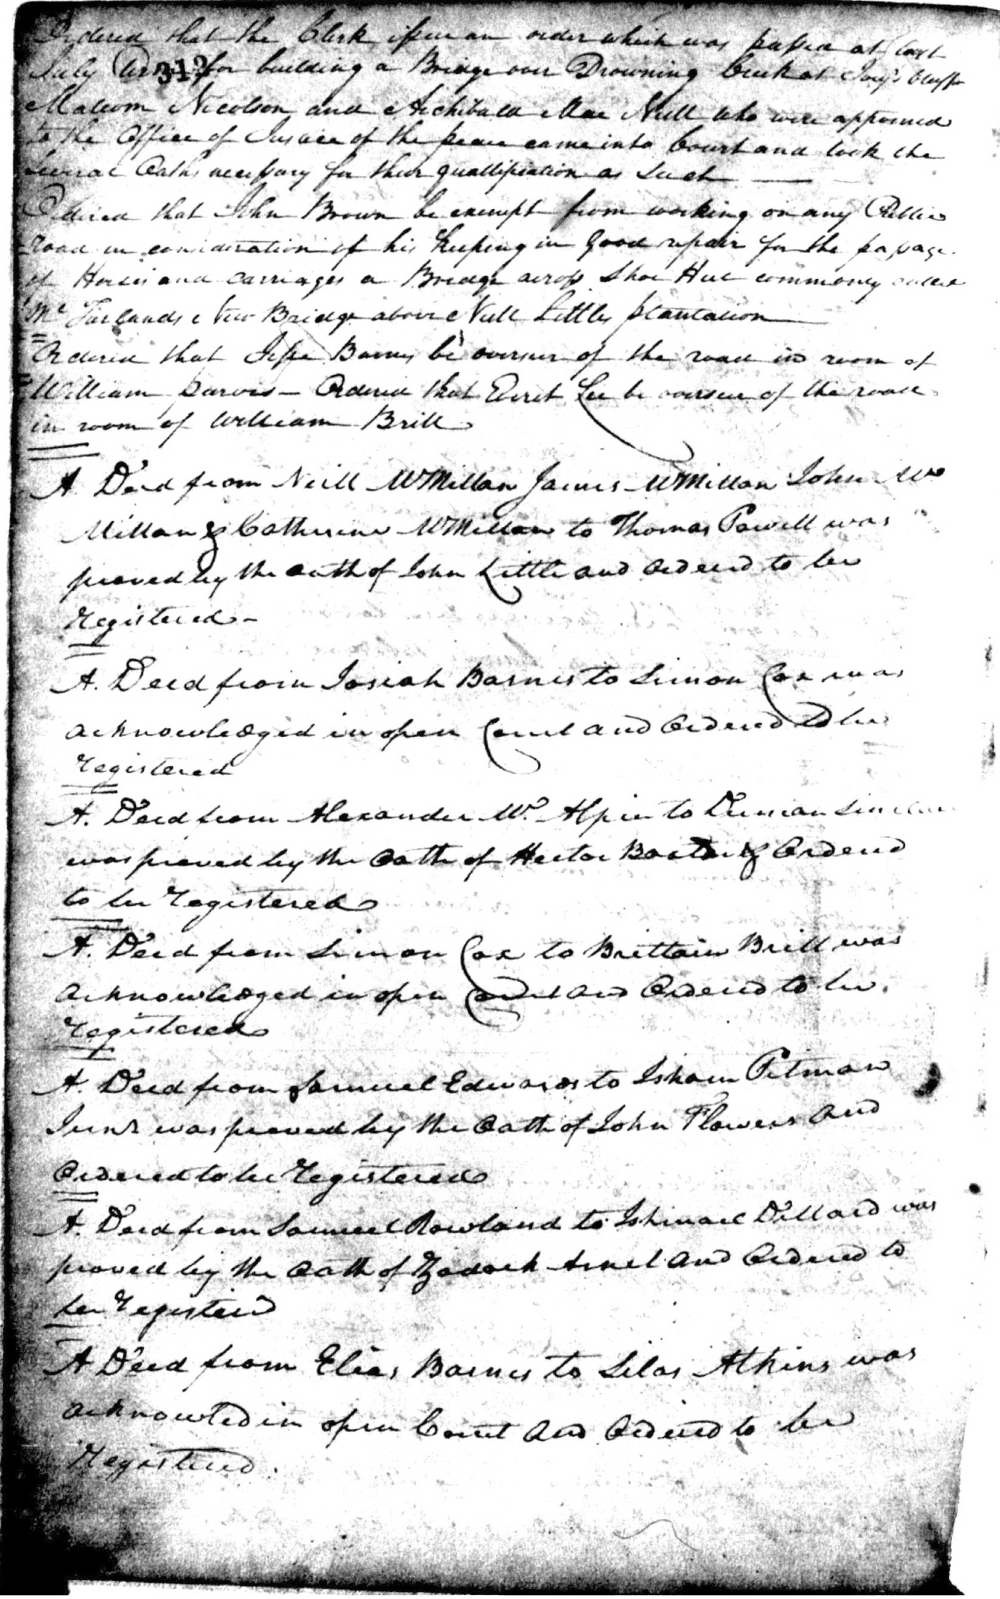 Ordered that the Clerk issue an order which was passed at last
July Term for building a Bridge over Drowning Creek at Bluff
312
Malcom Nicolson and Archibald Mac Neill who were appointed
to the Office of Justice of the peace came into Court and took the
Several Oaths necessary for their quallification as Such —
Ordered that John Brown be exempt from working on any Public
Road in consideration of his keeping in good repair for the passage
of Horses and Carriages a Bridge across Shoe Heel commonly called
Mc Farlands New Bridge above Neill Littles plantation
Ordered that Jesse Barnes be overseer of the road in room of
William Jarvis – Ordered that Everit Lee be overseer of the road
in room of William Britt
A Deed from Neill McMillan James McMillan John Mc
Millan & Catherine McMillan to Thomas Powell was
proved by the oath of John Little and ordered to be
Registered –
A. Deed from Josiah Barnes to Simon Cox was
acknowledged in open Court and Ordered to be
Registered
A. Deed from Alexander Mc. Alpin to Duncan Sinclair
was proved by the Oath of Hector & Ordered
to be Registered
A. Deed from Simon Cox to Brittain Britt was
acknowledged in open Court and Ordered to be
Registered
A. Deed from Samuel Edwards to Isham Pitman
Junr was proved by the Oath of John Flowers and
Ordered to be Registered
A. Deed from Samuel Rowland to Ishmael Dillard was
proved by the Oath of Zadock and Ordered to
be Registerd
A Deed from Elias Barnes to Silas Atkins was
acknowled in open Court and Ordered to be
Registered.